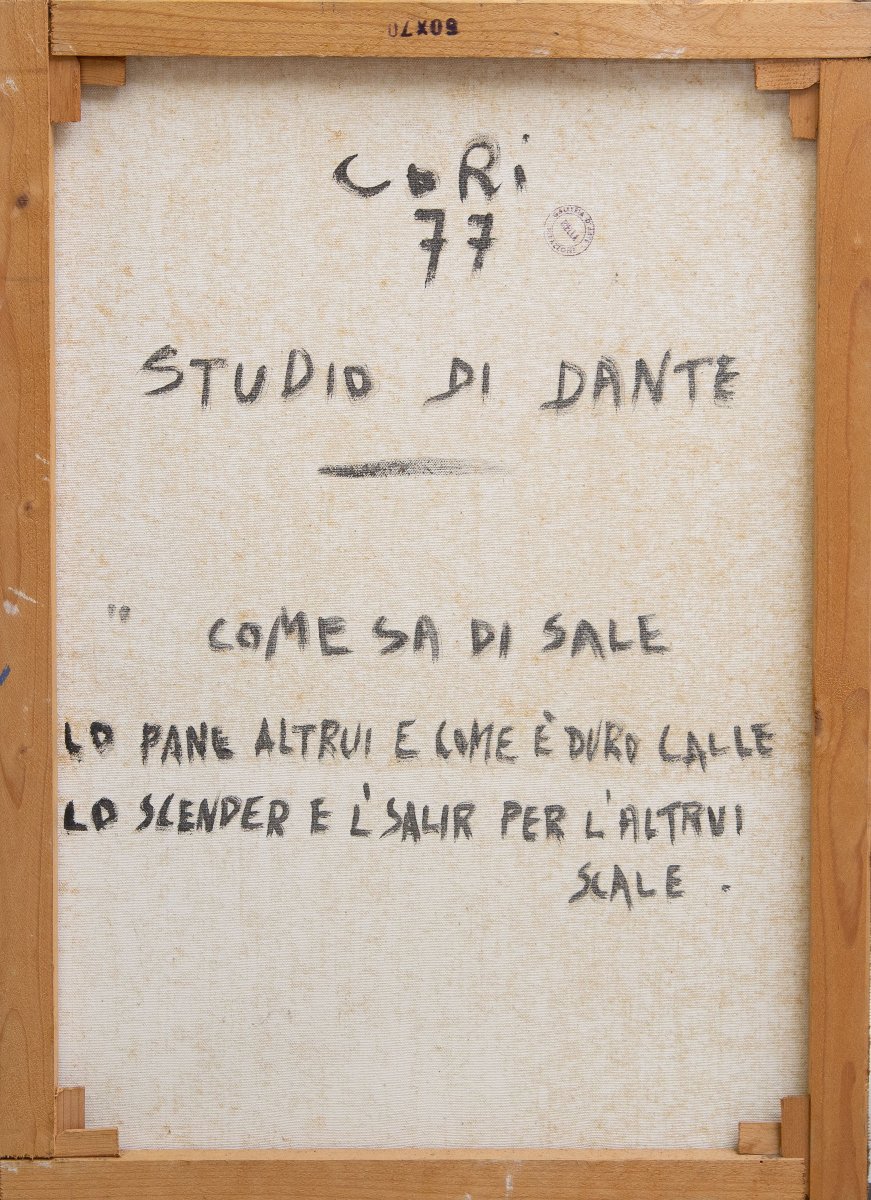 50X70
CORi
77
STUDIO DI DANTE
" COME SA DI SALE
LO PANE ALTRUI E COME È DURO CALLE
LO SCENDER E L'SALIR PER L'ALTRUI
SCALE .